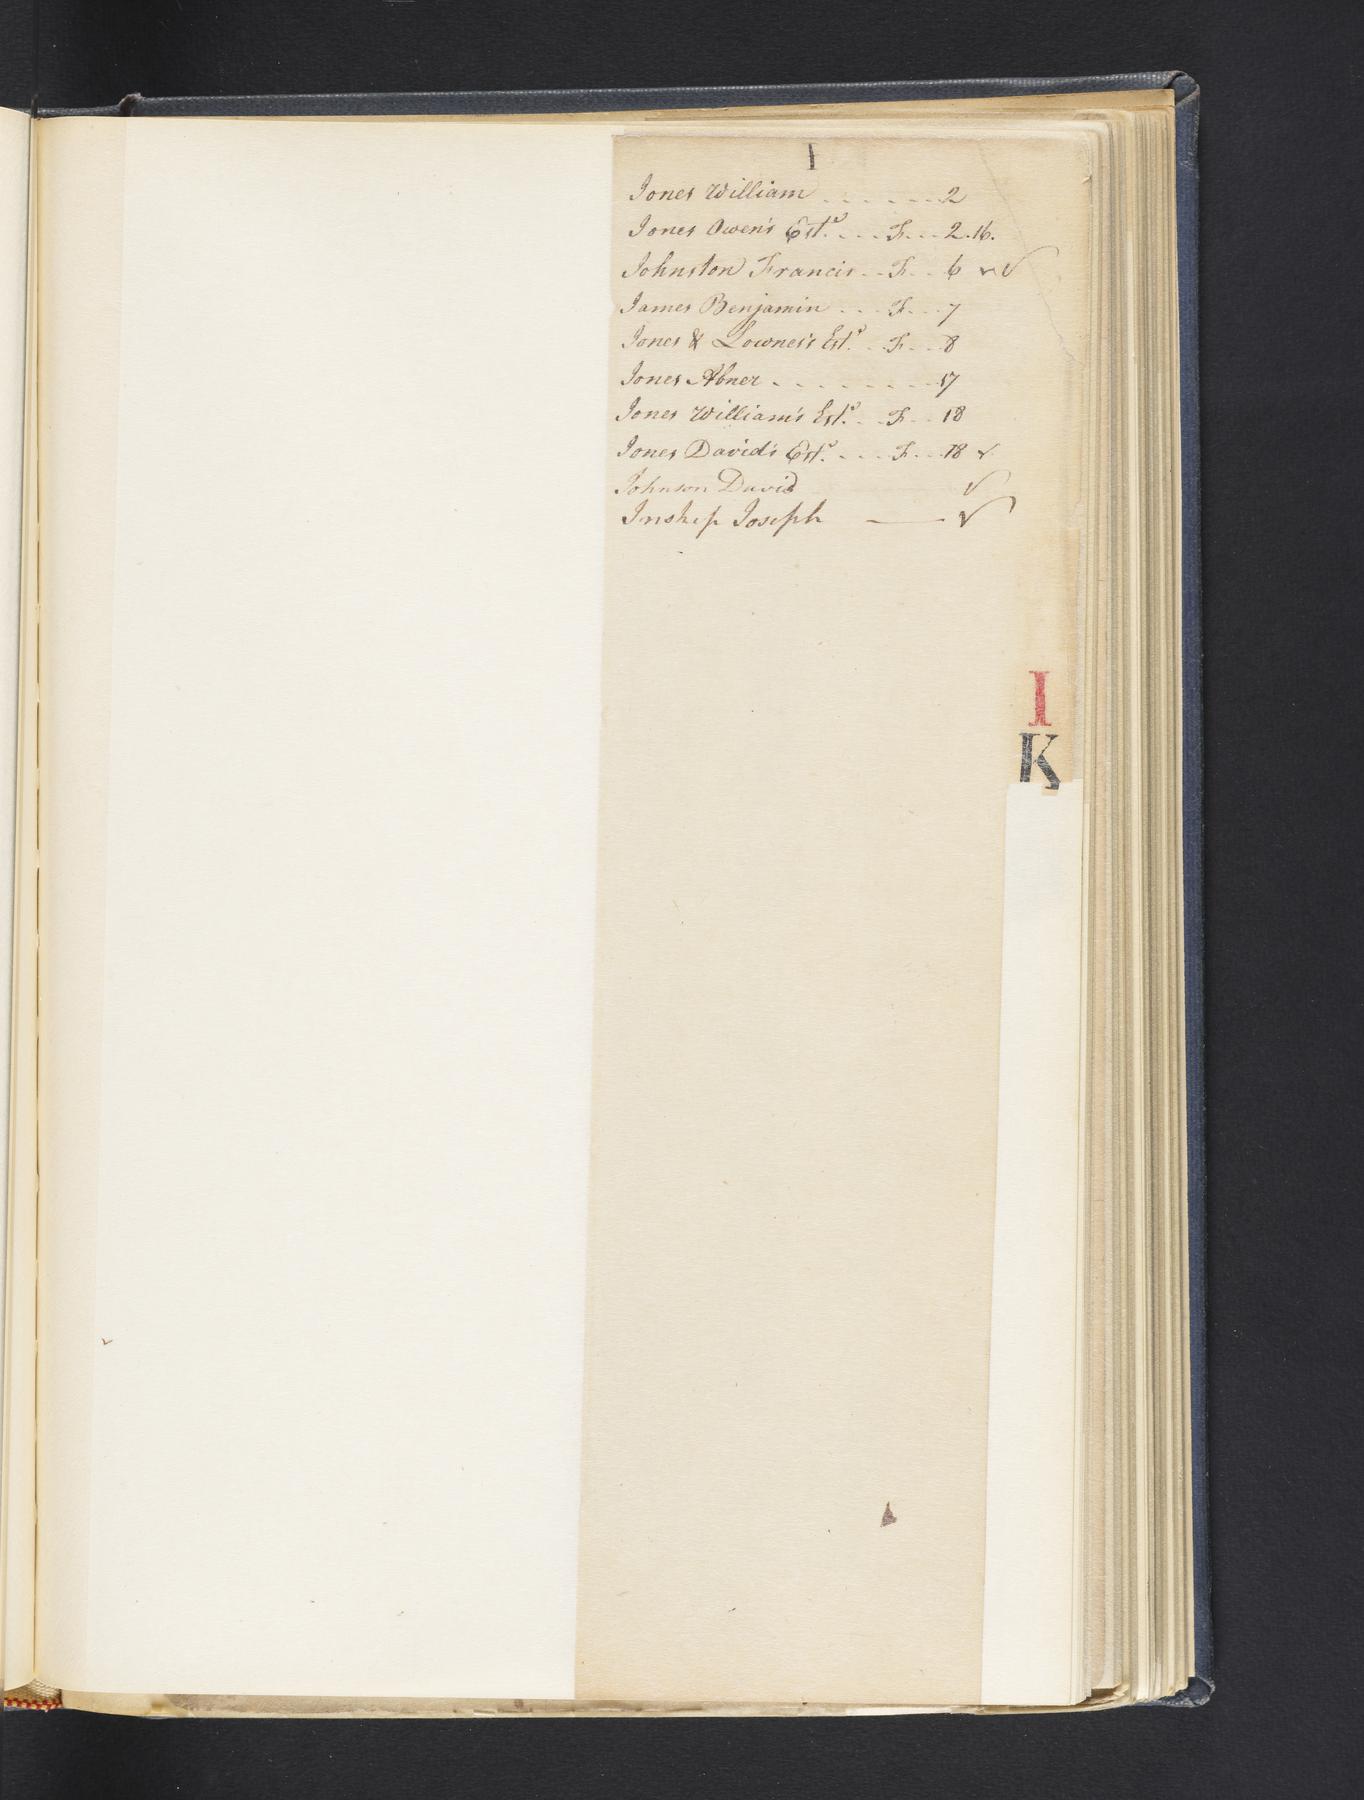 I
Jones William . . . . . . . 2
Jones Owen's Est.ᵉ . . . F . . . 2.16.
Johnston Francis . . F . . 6 ✓✓
James Benjamin . . . F . . . 7
Jones & Lownes's Est.ᵉ . . F . . . 8
Jones Abner . . . . . . . . 17
Jones William's Est.ᵉ . . F . . 18
Jones David's Est.ᵉ . . . . F . . . 18 ✓
Johnson David ✓
Inskip Joseph — ✓
I
K